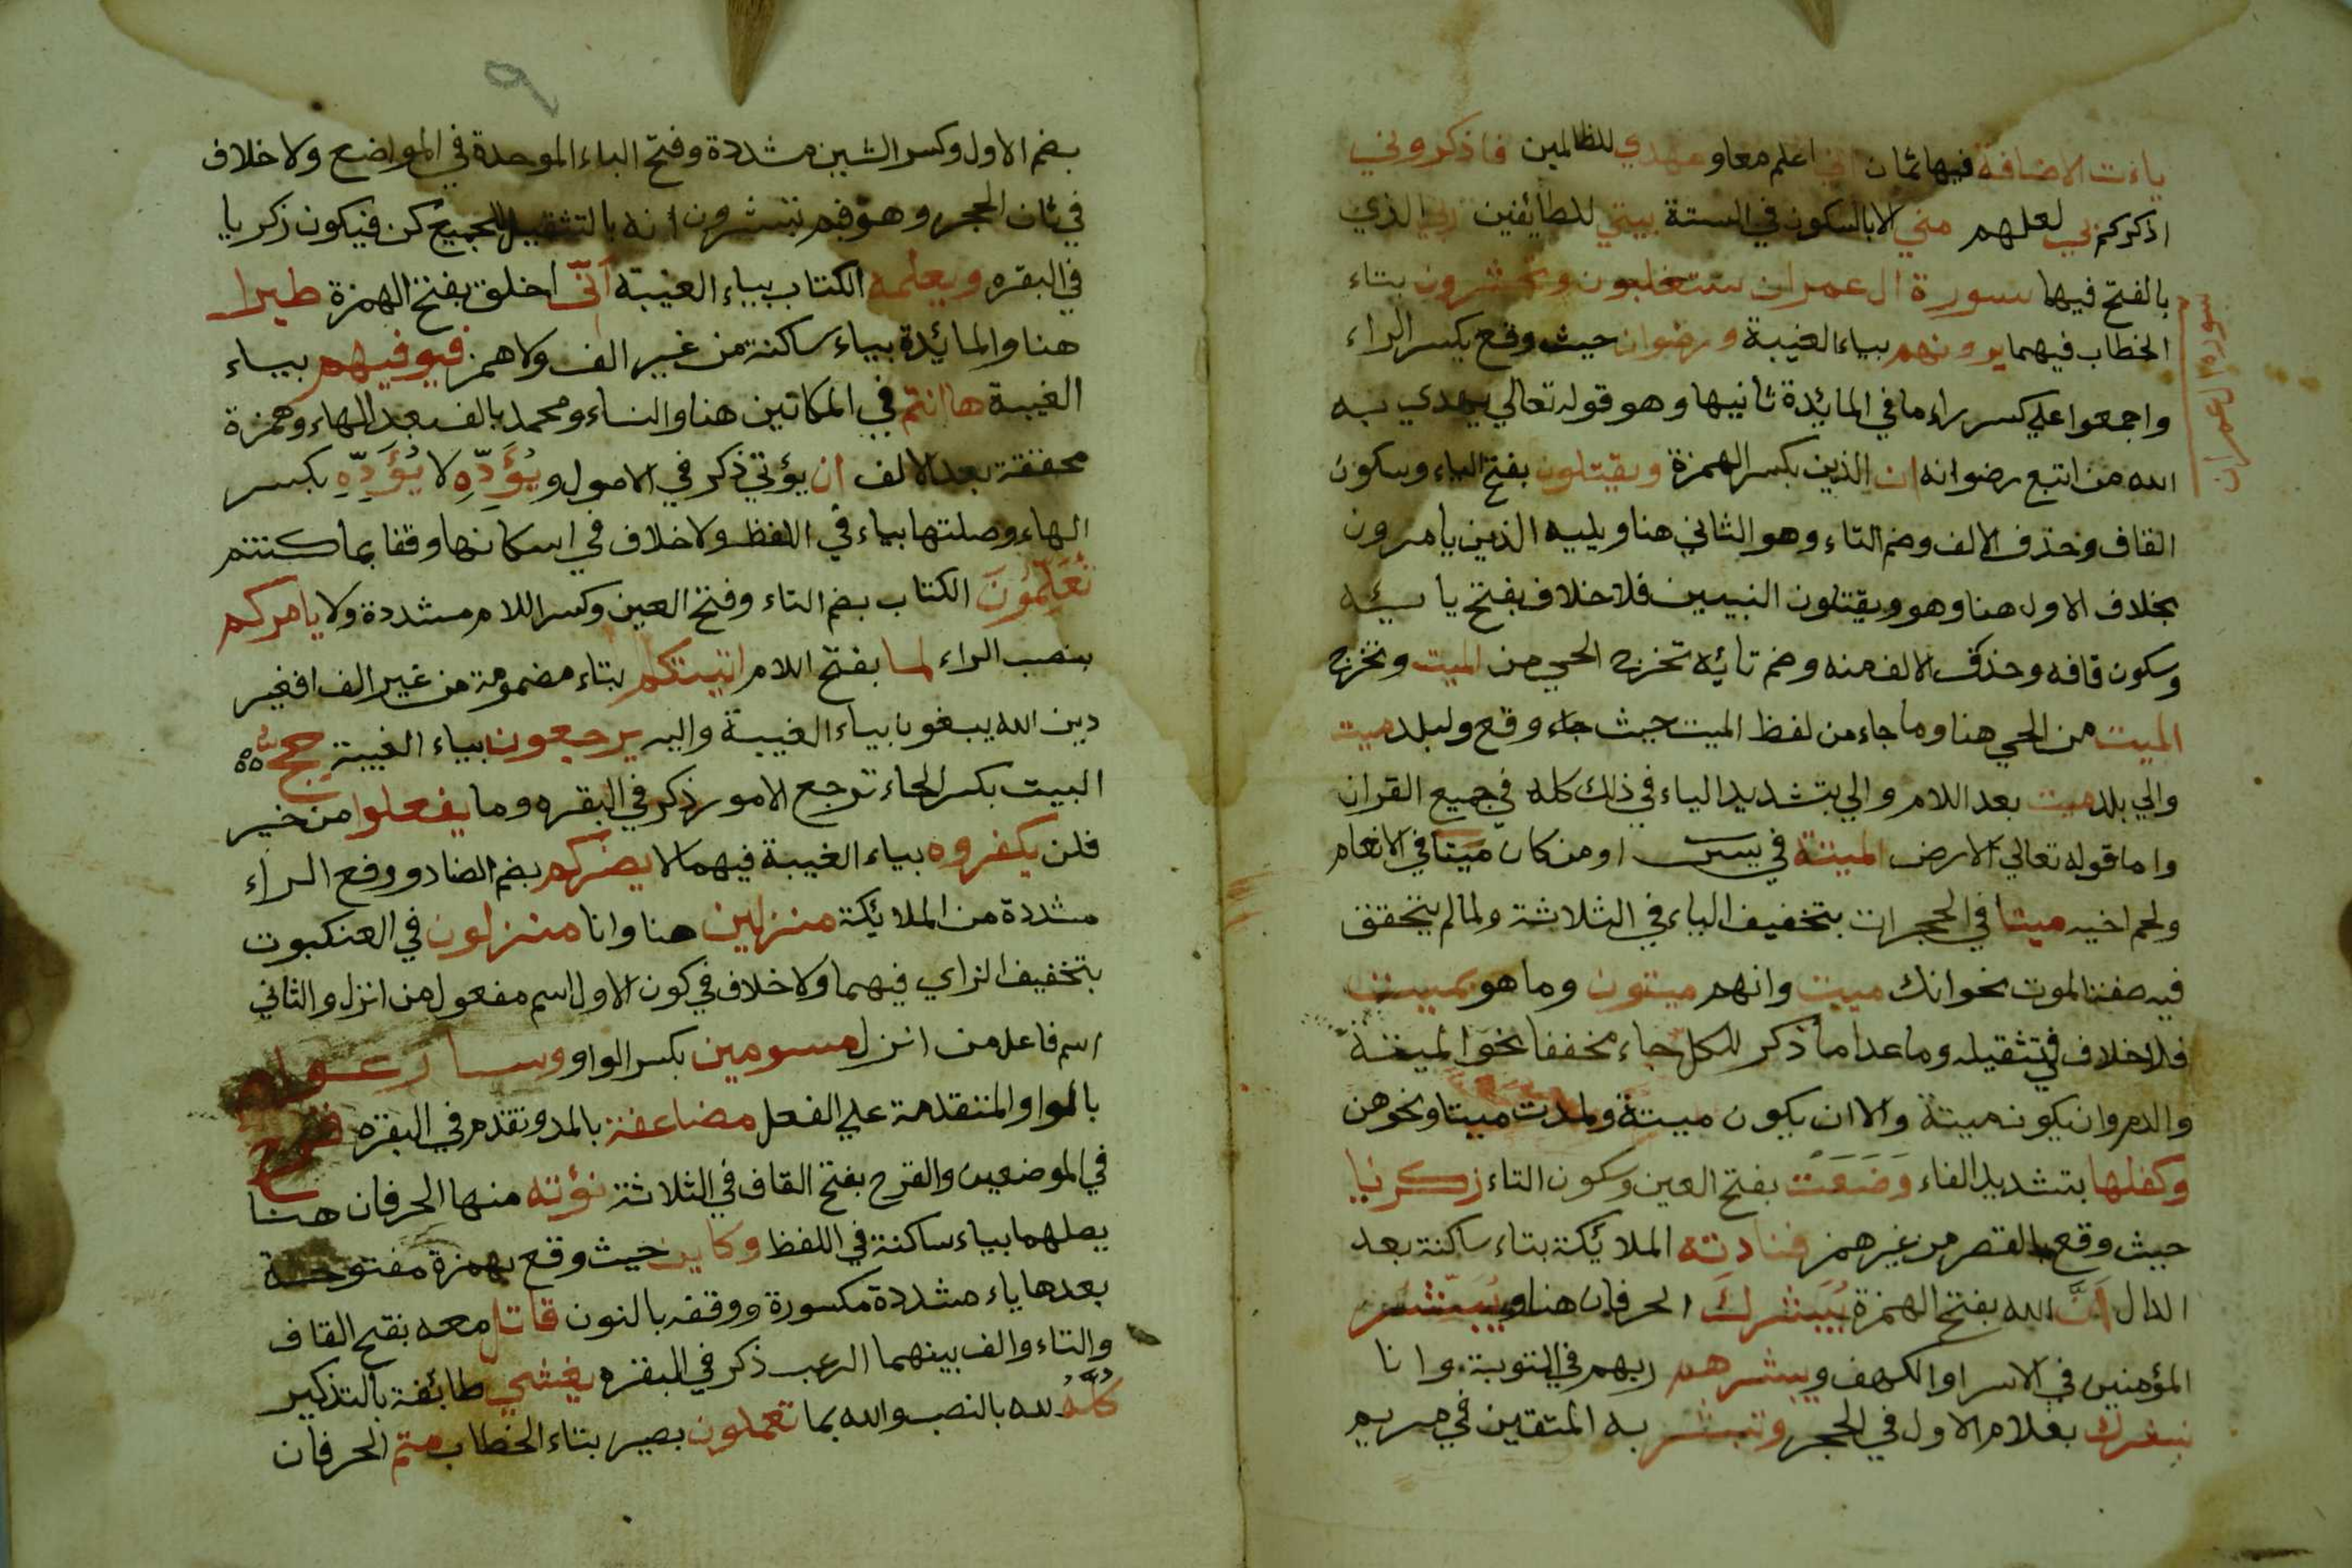 ياءت الاضافة فيها ثمان اني اعلم معا وعهدي للظالمين فاذكروني
اذكركم بي لعلهم مني الا بالسكون في الستة بيتي للطايفين ربي الذي
بالفتح فيها سورة ال عمران ستغلبون وتحشرون بتاء
الخطاب فيهما يرونهم بياء الغيبة ورضوان حيث وقع بكسر الراء
سورة ال عمران
واجمعوا علي كسر راء ما في المائدة ثانيها وهو قوله تعالي يهدي به
الله من اتبع رضوانه ان الذين بكسر الهمزة ويقتلون بفتح الياء وسكون
القاف وحذف الالف وضم التاء وهو الثاني هنا ويليه الذين يامرون
بخلاف الاول هنا وهو ويقتلون النبيين فلا خلاف بفتح يائه
وسكون قافه وحذف الالف منه وضم تائه تخرج الحي من الميت وتخرج
الميت من الحي هنا وما جاء من لفظ الميت حيث جاء وقع ولبلد ميت
والي بلد ميت بعد اللام والي بتشديد الياء في ذلك كله في جميع القران
واما قوله تعالي الارض الميتة في يسن اومن كان ميتا في الانعام
ولحم اخيه ميتا في الحجرات بتخفيف الياء في الثلاثة ولما لم يتحقق
فيه صفة الموت نحو انك ميت وانهم ميتون وما هو بميت
فلا خلاف في تثقيله وما عدا ما ذكر للكل جاء مخففا نحو الميتة
والدم وان يكون ميتة والا ان يكون ميتة ولمدت ميتا ونحوهن
وكفلها بتشديد الفاء وَضَعَتْ بفتح العين وسكون التاء زكريا
حيث وقع بالقصر من غير همز فنادته الملائكة بتاء ساكنة بعد
الدال اَنَّ الله بفتح الهمزة يُبَشّرك الحرفان هنا ويُبَشّر
المؤمنين في الاسرا والكهف ويبشرهم ربهم في التوبة وانا
نبشرك بغلام الاول في الحجر وتبشر به المتقين في مريم
بضم الاول وكسر الشين مشددة وفتح الباء الموحدة في المواضع ولا خلاف
في ثان الحجر وهو فبم تبشرون انه بالتثقيل للجميع كن فيكون زكريا
في البقره ويعلمه الكتاب بياء الغيبة اَنّى اخلق بفتح الهمزة طيرا
هنا والمائدة بياء ساكنة من غير الف ولا همز فيوفيهم بياء
الغيبة هاانتم في المكانين هنا والنساء ومحمد بالف بعد الهاء وهمزة
محققة بعد الالف ان يؤتي ذكر في الاصول ويُؤَدِّهِ لا يُؤَدِّهِ بكسر
الهاء وصلتها بياء في اللفظ ولا خلاف في اسكانها وقفا بما كنتم
تُعَلِّمُونَ الكتاب بضم التاء وفتح العين وكسر اللام مشددة ولا يامركم
بنصب الراء لما بفتح اللام اتيتكم بتاء مضمومة من غير الف افغير
دين الله يبغون بياء الغيبة واليه يرجعون بياء الغيبة حج
البيت بكسر الحاء ترجع الامور ذكر في البقره وما يفعلوا من خير
فلن يكفروه بياء الغيبة فيهما لا يضركم بضم الضاد ورفع الراء
مشددة من الملائكة منزلين هنا وانا منزلون في العنكبوت
بتخفيف الزاي فيهما ولا خلاف في كون الاول اسم مفعول من انزل والثاني
اسم فاعل من انزل مسومين بكسر الواو وسارعوا
بالواو المتقدمة علي الفعل مضاعفة بالمد وتقدم في البقره قرح
في الموضعين والقرح بفتح القاف في الثلاثة نؤته منها الحرفان هنا
يصلهما بياء ساكنة في اللفظ وكاين حيث وقع بهمزة مفتوحة
بعدها ياء مشددة مكسورة ووقفه بالنون قاتل معه بفتح القاف
والتاء والف بينهما الرعب ذكر في البقره يغشي طائفة بالتذكير
كُلَّهُ لله بالنصب والله بما تعملون بصير بتاء الخطاب متم الحرفان